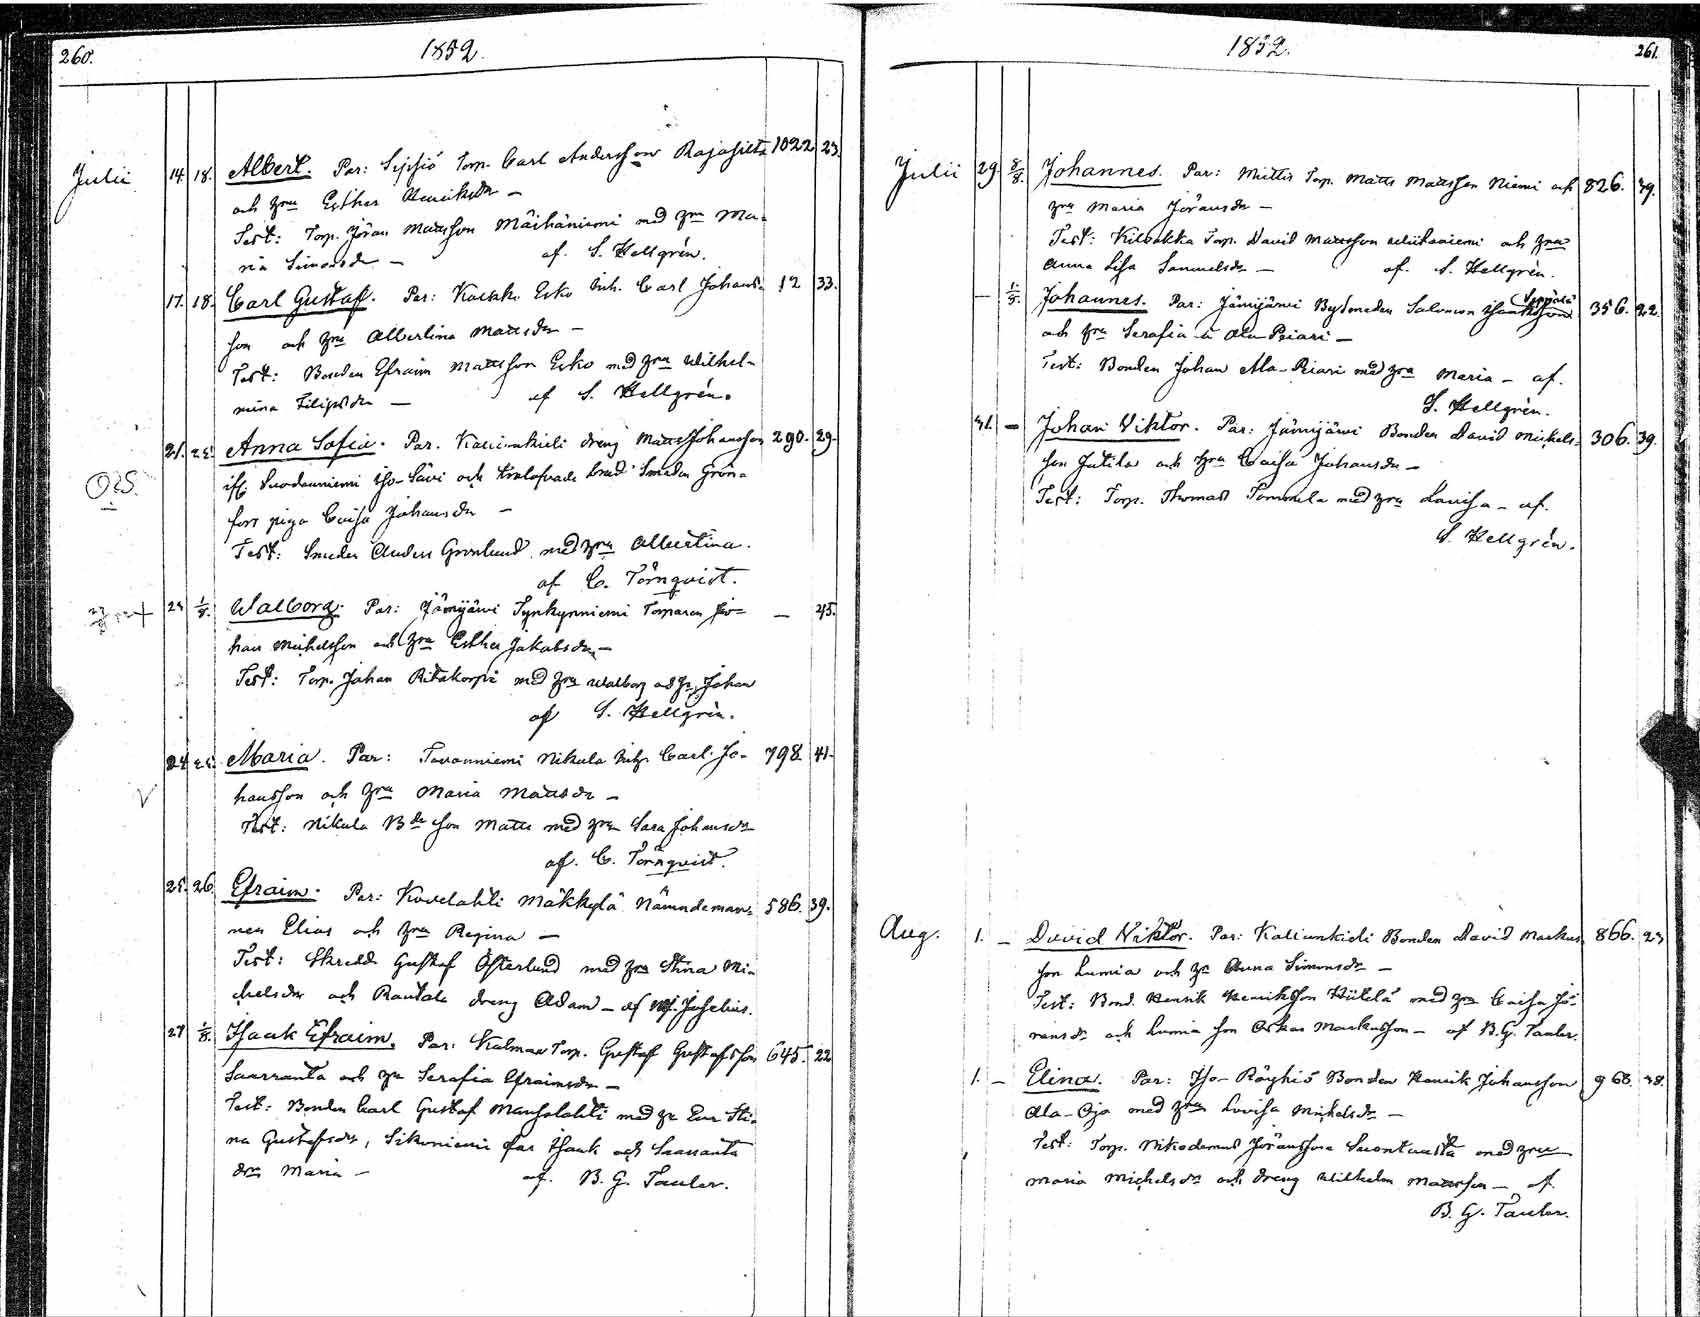 260.
1852.
Julii 14. 18. Albert. Par: Sipsiö Torp. Carl Andersson Rajasilta 1022 23.
och hru Esther Henriksdr —
Test: Torp. Jöran Mattsson Mäihäniemi med hru Ma-
ria Simonsdr — af. S. Hellgrén.
17. 18. Carl Gustaf. Par: Esko Inh. Carl Johans- 12 33.
son och hru Albertina Mattsdr —
Test: Bonden Efraim Mattsson Esko med hru Wilhel-
mina Filipsdr — af S. Hellgrén.
21. 25. Anna Sofia. Par. Kallinkieli dreng Matts Johansson 290. 29.
ifr. Suodenniemi Iso-Sävi och trolofvade brud Smeden Grön-
fors piga Caisa Johansdr —
O.S.
Test: Smeden Anders Grönlund med hru Albertina.
af C. Törnqvist.
23 1/8. Walborg. Par: Jämijärvi Synkynniemi Torparen Jo- — 45.
han Michelsson och hru Esther Jakobsdr —
Test: Torp. Johan Ritakorpi med hru Walborg och Johan
af S. Hellgrén.
24 25. Maria. Par: Nikula Inh. Carl Jo- 798. 41.
hansson och hru Maria Mattsdr —
Test: Nikula Bde son Matts med hru Sara Johansdr
af. C. Törnqvist.
25. 26. Efraim. Par: Kovelahti Mäkkylä Nämndeman- 586. 39.
nen Elias och hru Regina —
Test: Skredd. Gustaf Österlund med hru Stina Mi-
chelsdr och Rautala dreng Adam — af
27 1/8. Isaak Efraim. Par: Kalmaa Torp. Gustaf Gustafsson 645. 22
Saarranta och hru Serafia Efraimsdr —
Test: Bonden Carl Gustaf Mansolahti med hr Eva Sti-
na Gustafsdr, Sikuniemi far Isaak och Saaranta
dra Maria — af. B. G. Tauler.
1852.
261.
Julii 29. 8/8. Johannes. Par: Miettis Torp. Matts Mattsson Niemi och 826. 39.
hru Maria Jöransdr —
Test: Torp. David Mattsson och hru
Anna Lisa Samuelsdr — af. S. Hellgrén.
— 1/8. Johannes. Par: Jämijärvi Bysmeden Salomon Isaksson Seppälä 356. 22.
och hru Serafia à Ala-Piiari —
Test: Bonden Johan Ala-Piiari med hru Maria — af.
S. Hellgrén.
31. — Johan Viktor. Par: Jämijärvi Bonden David Michels- 306. 39.
son Jutila och hru Caisa Johansdr —
Test: Torp. Thomas Tommila med hru Lovisa — af.
S. Hellgrén.
Aug. 1. — David Viktor. Par: Kallinkieli Bonden David Markus- 866. 23
son Lumia och hr Anna Simonsdr —
Test: Bond. Henrik Henriksson Hütilä med hru Caisa Jö-
ransdr och Lumia son Oskar Markusson — af B. G. Tauler.
1. — Elina. Par: Iso-Röyhiö Bonden Henrik Johansson 966. 38.
Ala-Oja med hru Lovisa Michelsdr —
Test: Torp. Nikodemus Jöransson med hru
Maria Michelsdr och dreng Wilhelm Mattsson — af.
B. G. Tauler.